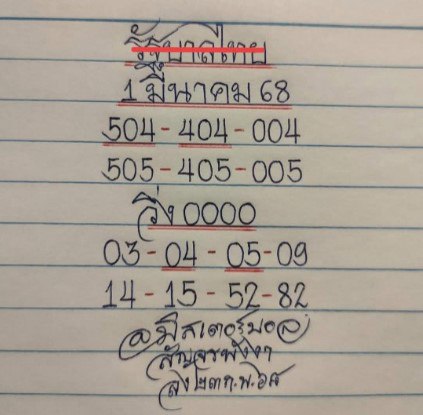 รัฐบาลไทย
1 มีนาคม 68
504-404-004
505-405-005
วิ่ง 0000
03-04-05-09
14-15-52-82
@มิสเตอร์บอล
สัญจรพังงา
ส่ง ๒๓ ก.พ. ๖๘